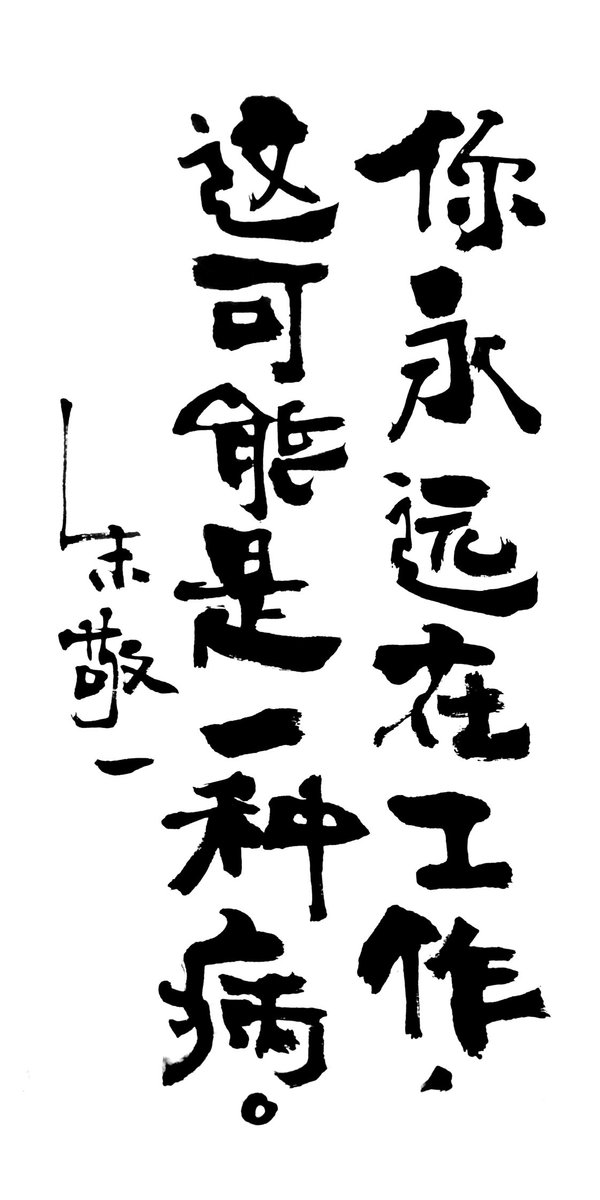 你永远在工作，
这可能是一种病。
—朱敬一